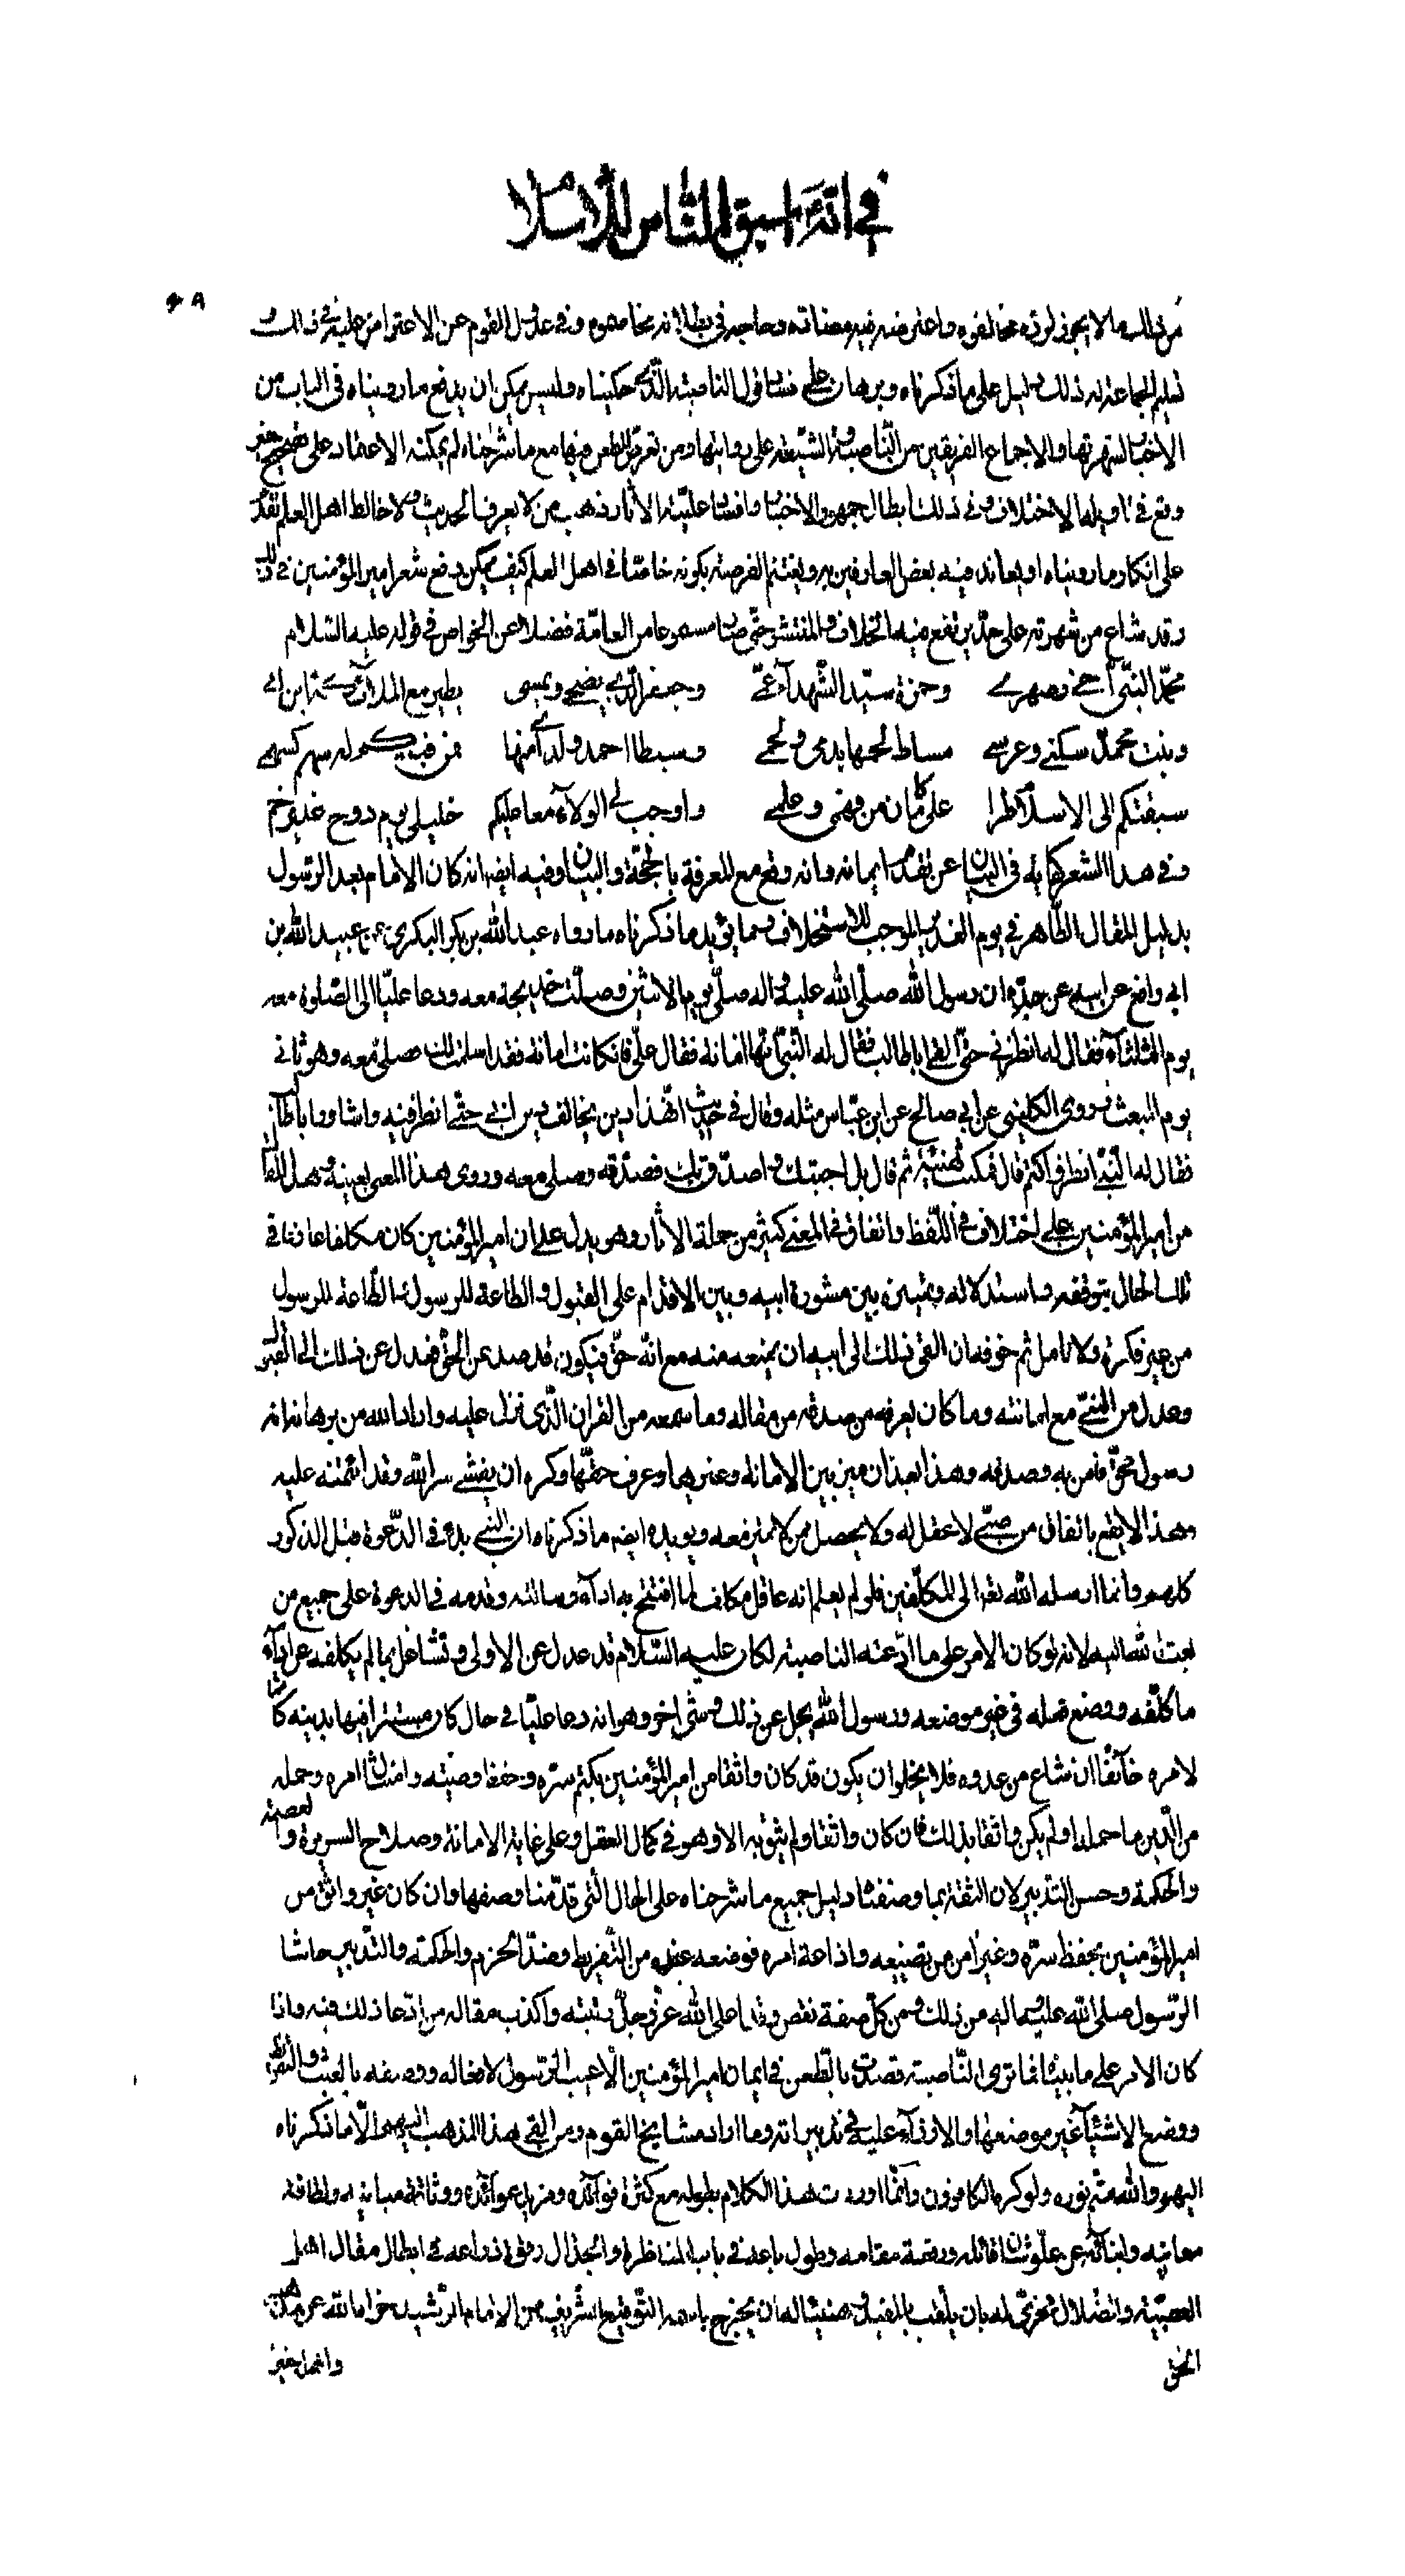 في انه اسبق الناس للاسلام
من ذلك ما لا يجوز لوقوعه مخالفوه واعترض فيه وحاجه في بطلانه مخاصموه وفي عدول القوم عن الاعتراض عليه في ذلك و
تسليم الجماعة له ذلك دليل على ما ذكرناه وبرهان على فساد قول الناصبة الذي حكيناه وليس يمكن ان يدفع ما رويناه في الباب من
الاخبار لشهرتها والاجماع الفريقين من الناصبة والشيعة على روايتها ومن تعرض للطعن فيها مع ما شرحناه لم يمكنه الاعتماد على تصحيح خبر
وقع في تاويله الاختلاف وفي ذلك ابطال جمهور الاخبار وافساد عامة الآثار وهب من لا يعرف الحديث ولا خالط اهل العلم يقدر
على انكار ما رويناه او يعاند فيه بعض العارفين به ويغتنم الفرصة بكونه خاصا في اهل العلم كيف يمكن دفع شعر امير المؤمنين في ذلك
وقد شاع من شهرته على حد يرتفع فيه الخلاف وانتشر حتى صار مسموعا من العامة فضلا عن الخواص في قوله عليه السلام
محمد النبي اخي وصهري وحمزة سيد الشهدآء عمي وجعفر الذي يضحي ويمسي يطير مع الملائكة ابن امي
وبنت محمد سكني وعرسي مساط لحمها بدمي ولحمي وسبطا احمد ولداي منها فمن فيكم له سهم كسهمي
سبقتكم الى الاسلام طرا على ما كان من فهمي وعلمي واوجب لي الولاء معا عليكم خليلي يوم دوح غدير خم
وفي هذا الشعر كفاية في البيان عن تقدم ايمانه وانه وقع مع المعرفة بالحجة والبيان وفيه ايضا انه كان الامام بعد الرسول
بدليل المقال الظاهر في يوم الغدير الموجب للاستخلاف ومما يؤيد ما ذكرناه ما رواه عبد الله بن بكر البكري عن عبيد الله بن
ابي رافع عن ابيه عن جده ان رسول الله صلى الله عليه وآله صلى يوم الاثنين وصلت خديجة معه ودعا عليا الى الصلوة معه
يوم الثلثآء فقال له انظرني حتى القى ابا طالب فقال له النبي انها امانة فقال علي فان كانت امانة فقد اسلمت لك فصلى معه وهو ثاني
يوم المبعث وروى الكلبي عن ابي صالح عن ابن عباس مثله وقال في حديثه ان هذا دين يخالف دين ابي حتى انظر فيه واشاور ابا طالب
فقال له النبي انظر واكتم قال فمكث هنيئة ثم قال بل اجبتك واصدق بك فصدقه وصلى معه وروى هذا المعنى بعينه وهذا المقال
من امير المؤمنين على اختلاف في اللفظ واتفاق في المعنى كثير من حملة الآثار وهو يدل على ان امير المؤمنين كان مكلفا عارفا في
تلك الحال بتوقفه واستدلاله وتمييزه بين مشورة ابيه وبين الاقدام على القبول والطاعة للرسول
من غير فكرة ولا تامل ثم خوفه ان القى ذلك الى ابيه ان يمنعه منه مع انه حق فيكون قد صد عن الحق فعدل عن ذلك الى القبول
وعدل من النبي مع امانته وما كان يعرفه من صدقه من مقاله وما سمعه من القران الذي نزل عليه واراد الله من برهانه انه
رسول محق فامن به وصدقه وهذا بعد ان ميز بين الامانة وغيرها وعرف حقها وكره ان يفشي سر الله وقد ائتمنه عليه
وهذا لا يقع باتفاق من صبي لا عقل له ولا يحصل ممن لا تمييز معه ويؤيد ايضا ما ذكرناه ان النبي بدء في الدعوة قبل الذكور
كلهم وانما ارسله الله تعالى الى المكلفين فلو لم يعلم انه عاقل مكلف لما افتتح به ادآء رسالته وقدمه في الدعوة على جميع من
بعث الله اليه لانه لو كان الامر على ما ادعته الناصبة لكان عليه السلام قد عدل عن الاولى وتشاغل بما لم يكلفه عن ادآء
ما كلفه ووضع فعله في غير موضعه ورسول الله يجل عن ذلك وشئ اخر وهو انه دعا عليا في حال كان مستترا فيها بدينه كاتما
لامره خآئفا ان شاع من عدوه فلا يخلو ان يكون قد كان واثقا من امير المؤمنين بكتم سره وحفظ وصيته وامتثال امره وحمله
من الدين ما حمله او لم يكن واثقا بذلك فان كان واثقا ولم يثق به الا وهو في كمال العقل وعلى غاية الامانة وصلاح السريرة والعصمة
والحكمة وحسن التدبير لان الثقة بما وصفنا دليل جميع ما شرحناه على الحال التي قدمنا وصفها وان كان غير واثق من
امير المؤمنين بحفظ سره وغير امن من تضييعه واذاعة امره فوضعه عنده من التفريط وضد الحزم والحكمة والتدبير حاشا
الرسول صلى الله عليه وآله من ذلك ومن كل صفة نقص وقد اعلى الله عز وجل رتبته واكذب مقال من ادعا ذلك فيه واذا
كان الامر على ما بيناه فما ترى الناصبة قصدت بالطعن في ايمان امير المؤمنين الا عيب الرسول والذم لافعاله ووصفه بالعبث والتفريط
ووضع الاشيآء غير موضعها والازرآء عليه في تدبيراته وما اراد مشايخ القوم ومن القى هذا المذهب اليهم الا ما ذكرناه
اليهم والله متم نوره ولو كره الكافرون وانما اوردت هذا الكلام بطوله مع كثرة فوآئده ومزيد عوآئده ووثاقة مبانيه ولطافة
معانيه ولانبائه عن علو شان قائله ورفعة مقامه وطول باعه في باب المناظرة والجدال وقوة ذراعه في ابطال مقال اهل
العصبية والضلال فحري له بان يلقب بالمفيد وهنيئا له ان يخرج باسمه التوقيع الشريف من الامام الرشيد جزاه الله عن هذه
الحق وافضل خير